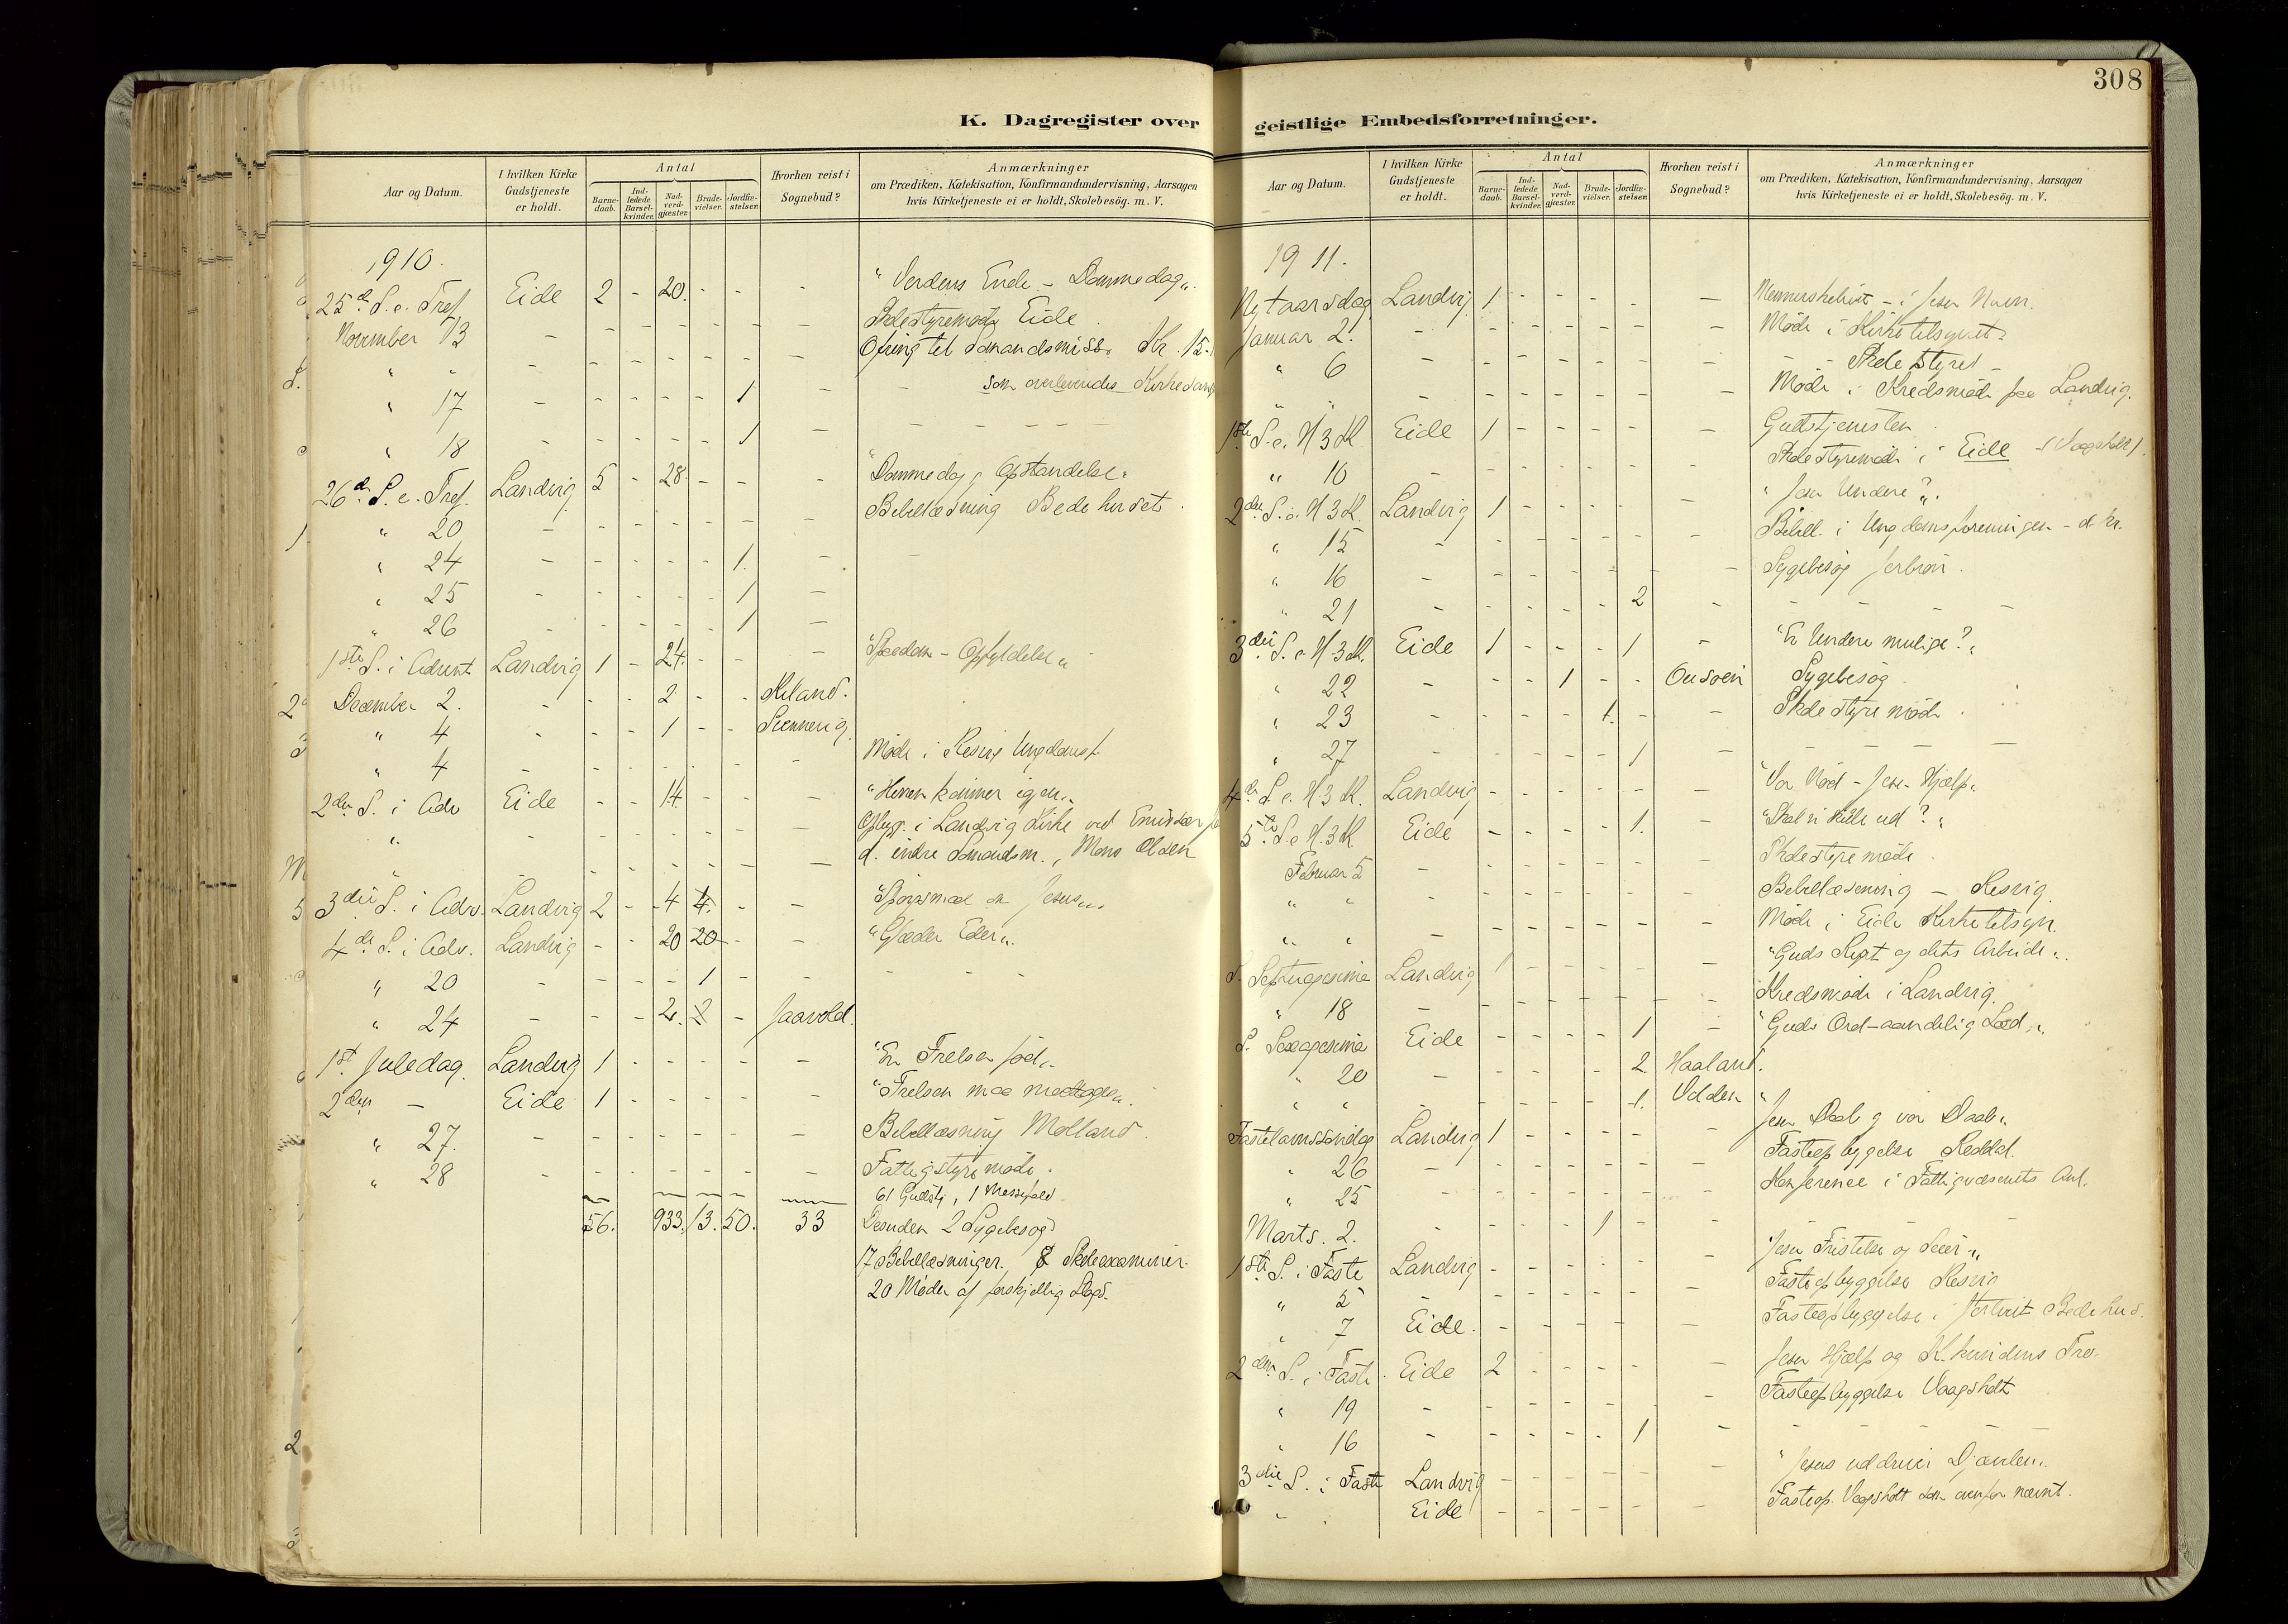 308
K. Dagregister over geistlige Embedsforretninger.
Aar og Datum. I hvilken Kirke Gudstjeneste er holdt. Antal Barne-daab. Ind-ledede Barsel-kvinder. Nad-verd-gjæster. Brude-vielser. Jordfæ-stelser. Hvorhen reist i Sognebud? Anmærkninger om Prædiken, Katekisation, Konfirmandundervisning, Aarsagen hvis Kirketjeneste ei er holdt, Skolebesög. m. V.
1910.
25de S. e. Tref. Eide 2 - 20. - - - "Verdens Ende - Dommedag".
November 13 - - - - - - - Skolestyremøde Eide
" " - - - - - - - Ofring til Sømandsmiss. Kr. 15.
" 17 - - - - - 1 - - som overlevendes
" 18 - - - - - 1 - - - - -
26de S. e. Tref. Landvig 5 - 28. - - - "Dommedag, Opstandelse"
" 20 - - - - - - - Bibellæsning Bedehuset.
" 24 - - - - - 1. - -
" 25 - - - - - 1 -
" 26 - - - - - 1 -
1ste S. i Advent Landvig 1 - 24. - - - - Opfyldelse"
December 2. - - - 2 - - Kiland.
" 4 - - - 1 - -
" 4 - - - - - - - Møde i Resvig Ungdomsf.
2den S. i Adv Eide - - 14. - - - "Herren kommer igjen".
" - - - - - - - Opbygg. i Landvig Kirke ved Emissær
" - - - - - - d. indre Sømandsm., Mons Olsen
3die S. i Adv. Landvig 2 - 4 4. - - "Spørsmaal om Jesus"
4de S. i Adv. Landvig - - 20 20 - - "Glæder Eder".
" 20 - - - - 1 - - - - -
" 24 - - - 2. 2 - Jaavold.
1ste Juledag. Landvig 1 - - - - - "En Frelser fød".
2den - Eide 1 - - - - - "Frelsen maa modtages".
" 27. - - - - - - - Bibellæsning Molland.
" 28 - - - - - - - Fattigstyremøde.
61 Gudstj., 1 Messefald
56. 933. 13. 50. 33 Desuden 2 Sygebesøg
17 Bibellæsninger. 8 Skoleexaminer.
20 Møder af forskjellig Slags.
Aar og Datum. I hvilken Kirke Gudstjeneste er holdt. Antal Barne-daab. Ind-ledede Barsel-kvinder. Nad-verd-gjæster. Brude-vielser. Jordfæ-stelser. Hvorhen reist i Sognebud? Anmærkninger om Prædiken, Katekisation, Konfirmandundervisning, Aarsagen hvis Kirketjeneste ei er holdt, Skolebesög. m. V.
1911.
Nytaarsdag Landvig 1 - - - - - - i Jesu Navn.
Januar 2. - - - - - - - Møde i Kirketilsynet
" 6 - - - - - - - - - Skolestyret -
" " - - - - - - - Møde i Kredsmøde paa Landvig.
1ste S. e. H 3 K Eide 1 - - - - - Gudstjenesten
" 10 - - - - - - Skolestyremøde i Eide (Vaagsholt).
2den S. e. H 3 K. Landvig 1 - - - - - " Jesu Undere?".
" 15 - - - - - - - Bibell. i Ungdomsforeningen
" 16 - - - - - - - Sygebesøg
" 21 - - - - - 2 - - - - -
3die S. e. H. 3 K. Eide 1 - - - 1 - "Er Undere mulige?"
" 22 - - - 1 - - Sygebesøg
" 23 - - - - 1. - - Skolestyremøde.
" 27 - - - - - 1 - - - -
4de S. e. H 3 K. Landvig - - - - - - "Vor Nød - Jesu Hjælp"
5te S. e. H. 3 K Eide - - - - 1. - "Skal vi skille ud?"
Februar 5 - - - - - - - Skolestyremøde.
" " - - - - - - Bibellæsning - Resvig.
" " - - - - - - - Møde i Eide Kirketilsyn.
S. Septuagesima Landvig 1 - - - - - "Guds Rige og dets Arbeide".
" 18 - - - - - - - Kredsmøde i Landvig.
S. Sexagesima Eide - - - - 1 - "Guds Ord - aandelig Sæd".
" 20 - - - - - 2 Haaland.
" " - - - - - 1. Udden "
Fastelavnssøndag Landvig 1 - - - - - Jesu Daab og vor Daab"
" 26 - - - - - - - Fasteopbyggelse Reddal.
" 25 - - - - - - - Konference i Fattigvæsenets Anl.
Marts. 2. - - - - 1 - -
1ste S. i Faste Landvig - - - - - - "Jesu Fristelse og Seier".
" 5 - - - - - - - Fasteopbyggelse Resvig
" 7 Eide. - - - - - - Fasteopbyggelse i Bedehus.
2den S. i Faste. Eide 2 - - - - - Jesu Hjælp og K. kvindens Tro.
" 19 - - - - - - - Fasteopbyggelse Vaagsholt
" 16 - - - - - 1 - - - - -
3die S. i Faste Landvig - - - - - - "Jesus uddriver Djævlen".
" " Eide - - - - - - Fasteop. Vaagsholt som ovenfor nævnt.